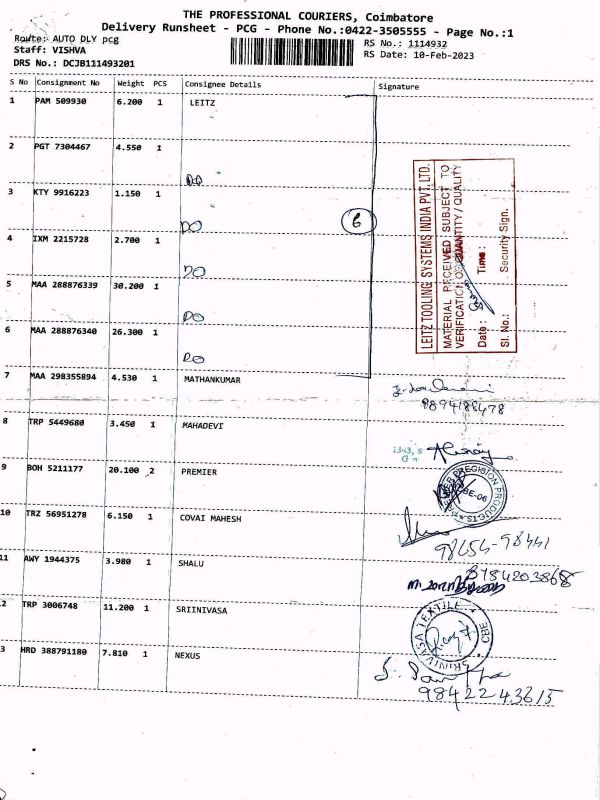 THE PROFESSIONAL COURIERS, Coimbatore
Delivery Runsheet - PCG - Phone No.:0422-3505555 - Page No.:1
Route: AUTO DLY pcg
RS No.: 1114932
Staff: VISHVA
RS Date: 10-Feb-2023
DRS No.: DCJB111493201
S No Consignment No Weight PCS Consignee Details Signature
1 PAM 509930 6.200 1 LEITZ
2 PGT 7304467 4.550 1
DO
3 KTY 9916223 1.150 1
DO
6
4 IXM 2215728 2.700 1
DO
5 MAA 288876339 30.200 1
DO
6 MAA 288876340 26.300 1
DO
LEITZ TOOLING SYSTEMS INDIA PVT. LTD.
MATERIAL RECEIVED SUBJECT TO
VERIFICATION OF QUANTITY / QUALITY
Date : Time :
Sl. No.: Security Sign.
7 MAA 298355894 4.530 1 MATHANKUMAR
9894188478
8 TRP 5449680 3.450 1 MAHADEVI
9 BOH 5211177 20.100 2 PREMIER
PRECISION PRODUCTS
10 TRZ 56951278 6.150 1 COVAI MAHESH
98654-98441
11 AWY 1944375 3.980 1 SHALU
8784203868
2 TRP 3006748 11.200 1 SRIINIVASA
SRINIVASA TEXTILE CBE
3 HRD 388791180 7.810 1 NEXUS
9842243615